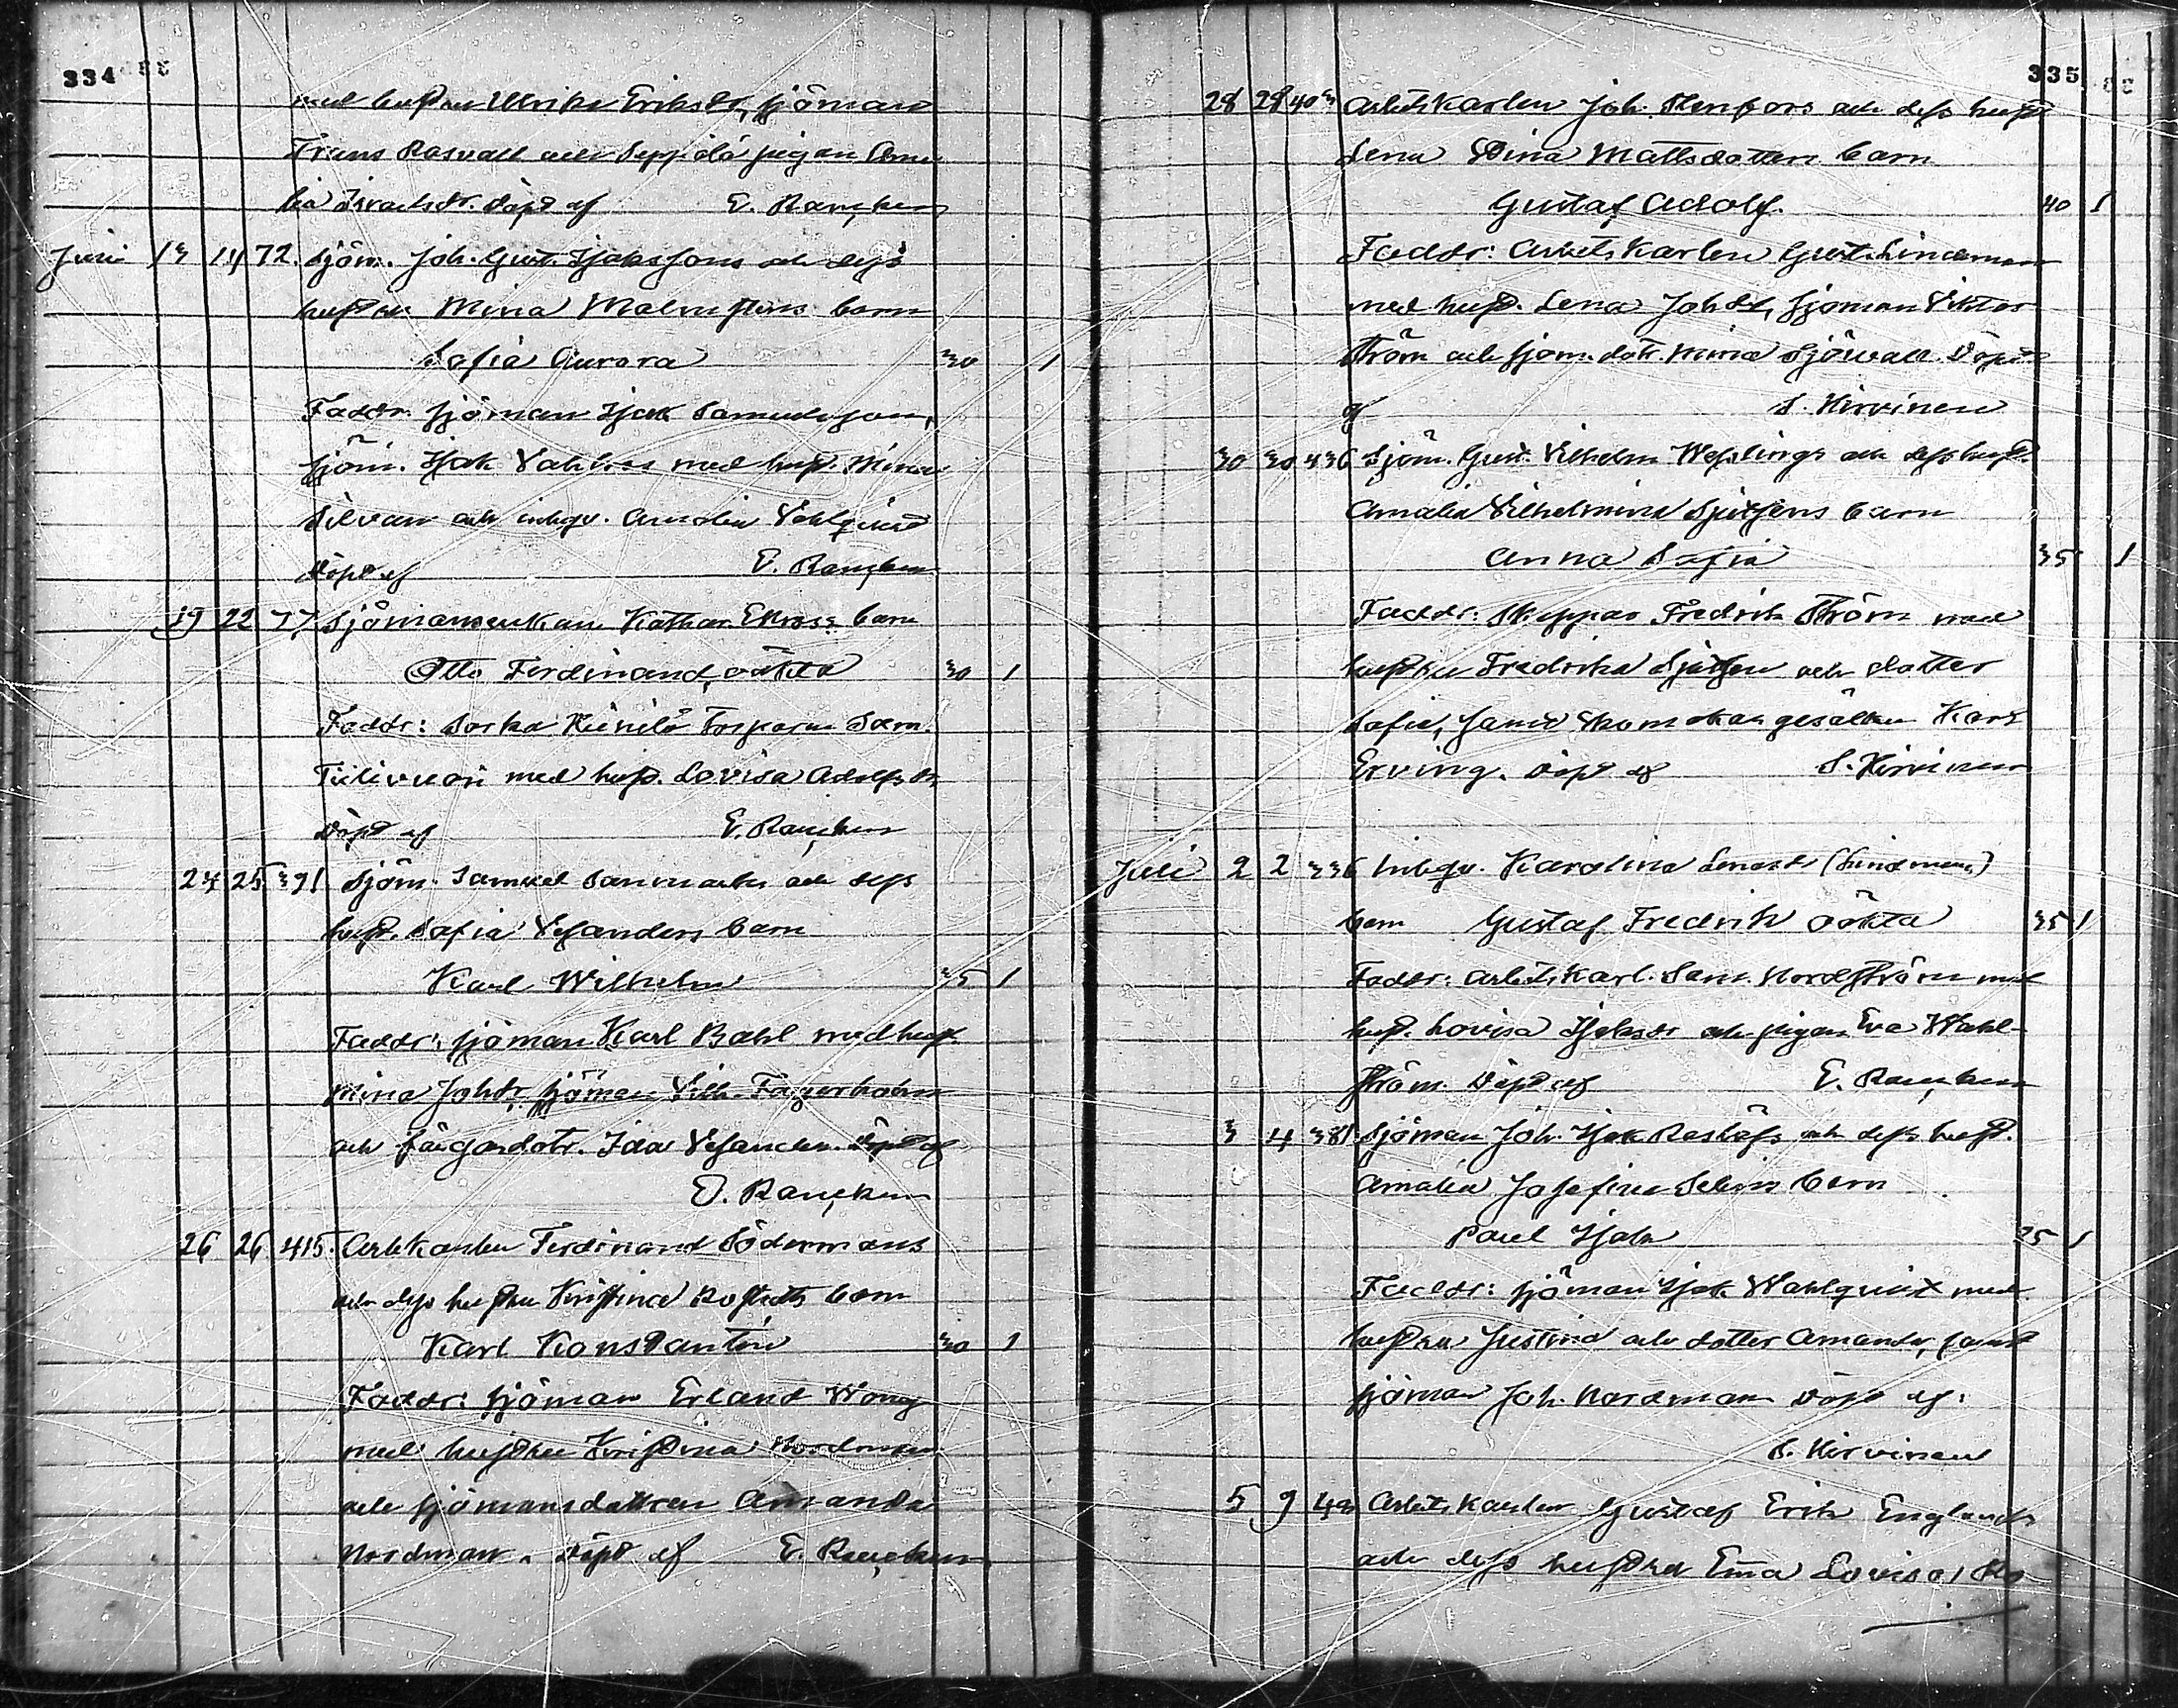 334
med hustrun Ulrika Eriksdr, sjöman
Frans Rosvall och Sepp.do pigan Ama
lia Israelsdr. döpt af E. Rancken
Juni 13 14 72. Sjöm. Joh. Gust. Isakssons och dess
hustrun Mina Malmstens barn
Sofia Aurora 30 1
Faddr. sjöman Isak Samuelsson,
sjöm. Isak med hust. Mina
Silvan och inhys. Amalia Vahlqvist
Döpt af E. Rancken
19 22 77 Sjömansenkan Kathar. Ekroos barn
Otto Ferdinand, oäkta 30 1
Faddr: Sam.
Tiilivuori med hust. Lovisa Adolfsdr
Döpt af E. Rancken
24 25 391 Sjöm. Samuel Sanmarks och dess
hust. Sofia Vesanders barn
Karl Wilhelm 35 1
Faddr: sjöman Karl Bahl med hust
Mina Johdr. sjöman Vilh. Fagerholm
och färgaredotr. Ida Vesander. Döpt af
E. Rancken
26 26 415. Arb.karlen Ferdinand Södermans
och dess hustru Kristina barn
Karl Konstantin 30 1
Faddr: sjöman Erland Wong
med hustru Kristina Nordman
och sjömansdottren Amanda
Nordman. Döpt af E. Rancken
335
28 28 403 Arbetskarlen Joh. Stenfors och dess hust
Lena Dina Mattsdotters barn
Gustaf Adolf. 40 1
Faddr: Arbetskarlen Gust. Lindeman
med hust. Lena Johdr, sjöman Viktor
Ström och sjöm. dotr. Mina Sjövall. Döpt
af S. Hirvinen
30 30 436 Sjöm. Gust. Vilhelm Wesslings och dess hust.
Amalia Vilhelmina barn
Anna Sofia 35 1
Faddr: Skeppar Fredrik Ström med
hustru Fredrika och dotter
Sofia, samt skomakaregesällen Karl
Erving. Döpt af S. Hirvinen
Juli 2 2 336 Inhys. Karolina (Lindman)
barn Gustaf Fredrik oäkta 35 1
Faddr: arbetskarl. Sam. Nordström med
hust. Lovisa Isaksdr och pigan Eva Wahl-
ström. Döpt af E. Rancken
3 4 381. Sjöman Joh. Isak och dess hust.
Amalia Josefina Selins barn
Paul Isak 25 1
Faddr: sjöman Isak Wahlqvist med
hustru Justina och dotter Amanda, samt
sjöman Joh. Nordman Döpt af:
S. Hirvinen
5 9 Arbetskarlen Gustaf Erik Englunds
och dess hustru Ema Lovisa